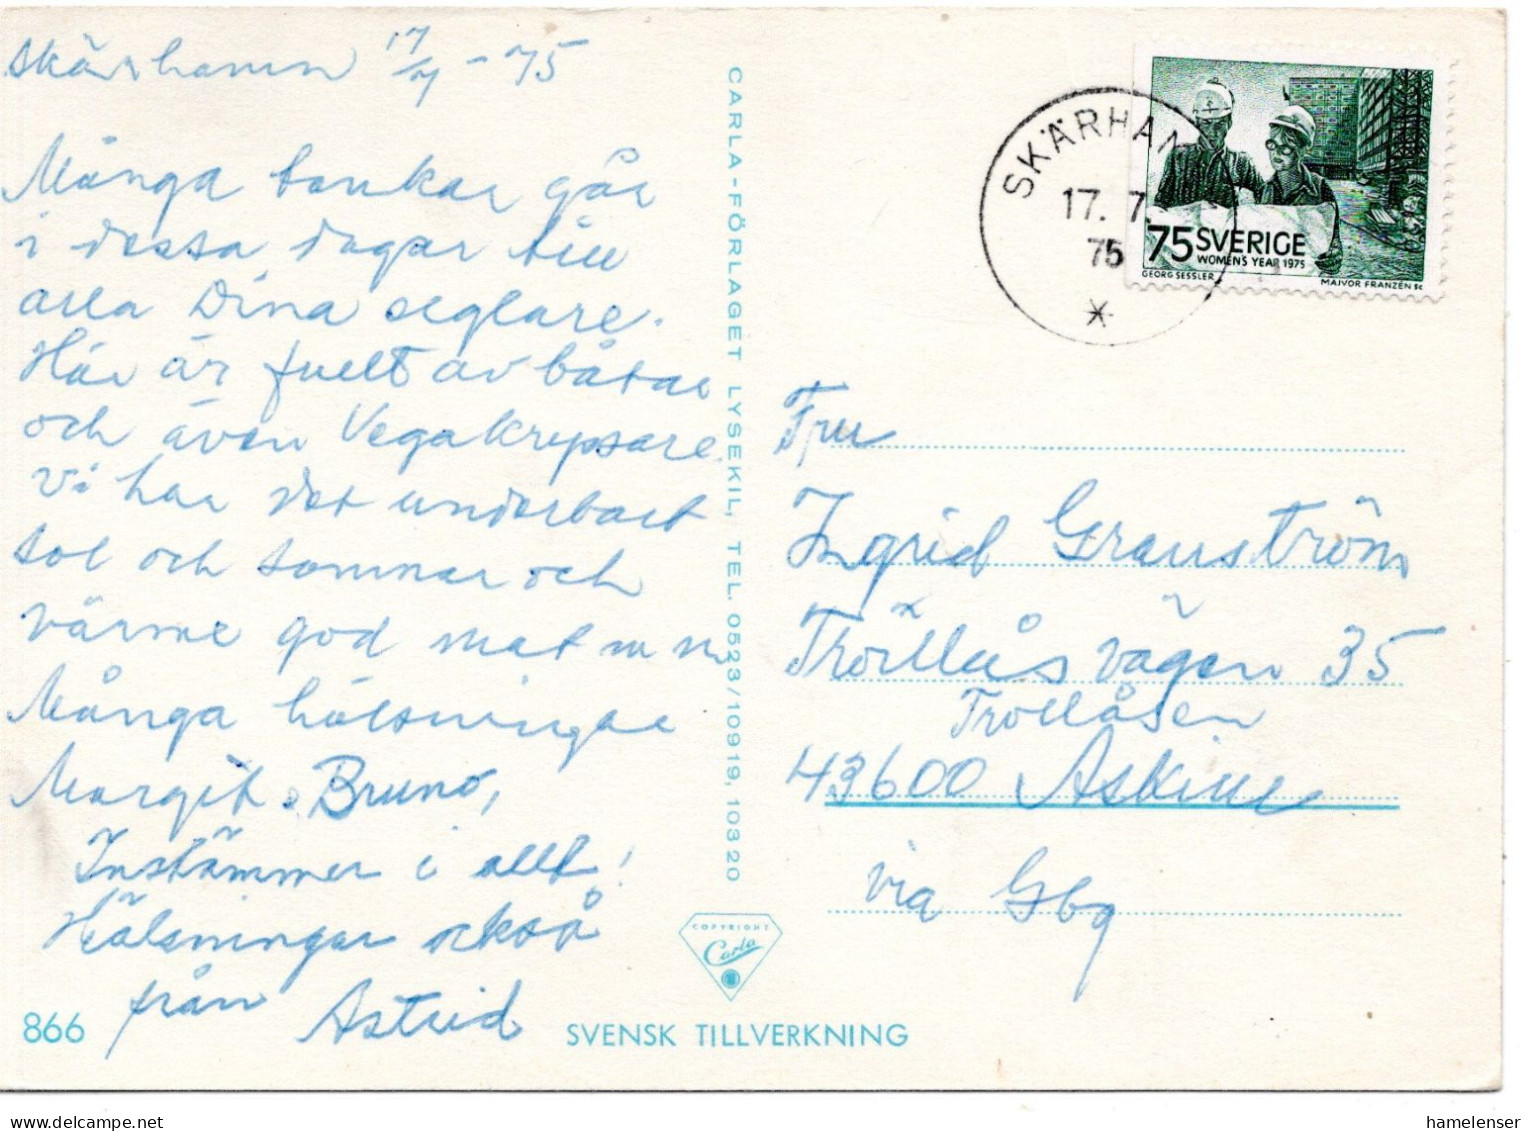 Skärhamn 17/7 - 75
Många tankar går
i dessa dagar till
alla Dina seglare.
Här är fullt av båtar
och även Vegakryssare
Vi har det underbart
sol och sommar och
värme god mat m m
Många hälsningar
Margit. Bruno,
Instämmer i allt!
Hälsningar också
från Astrid
866
SVENSK TILLVERKNING
CARLA-FÖRLAGET LYSEKIL, TEL. 0523/10919, 10320
COPYRIGHT
Carla
SKÄRHAM
17. 7.
75
75 SVERIGE
WOMEN'S YEAR 1975
GEORG SESSLER
MAJVOR FRANZÉN SC
Fru
Ingrid Granström
Trollåsvägen 35
Trollåsen
43600 Askim
via Gbg
hamelenser